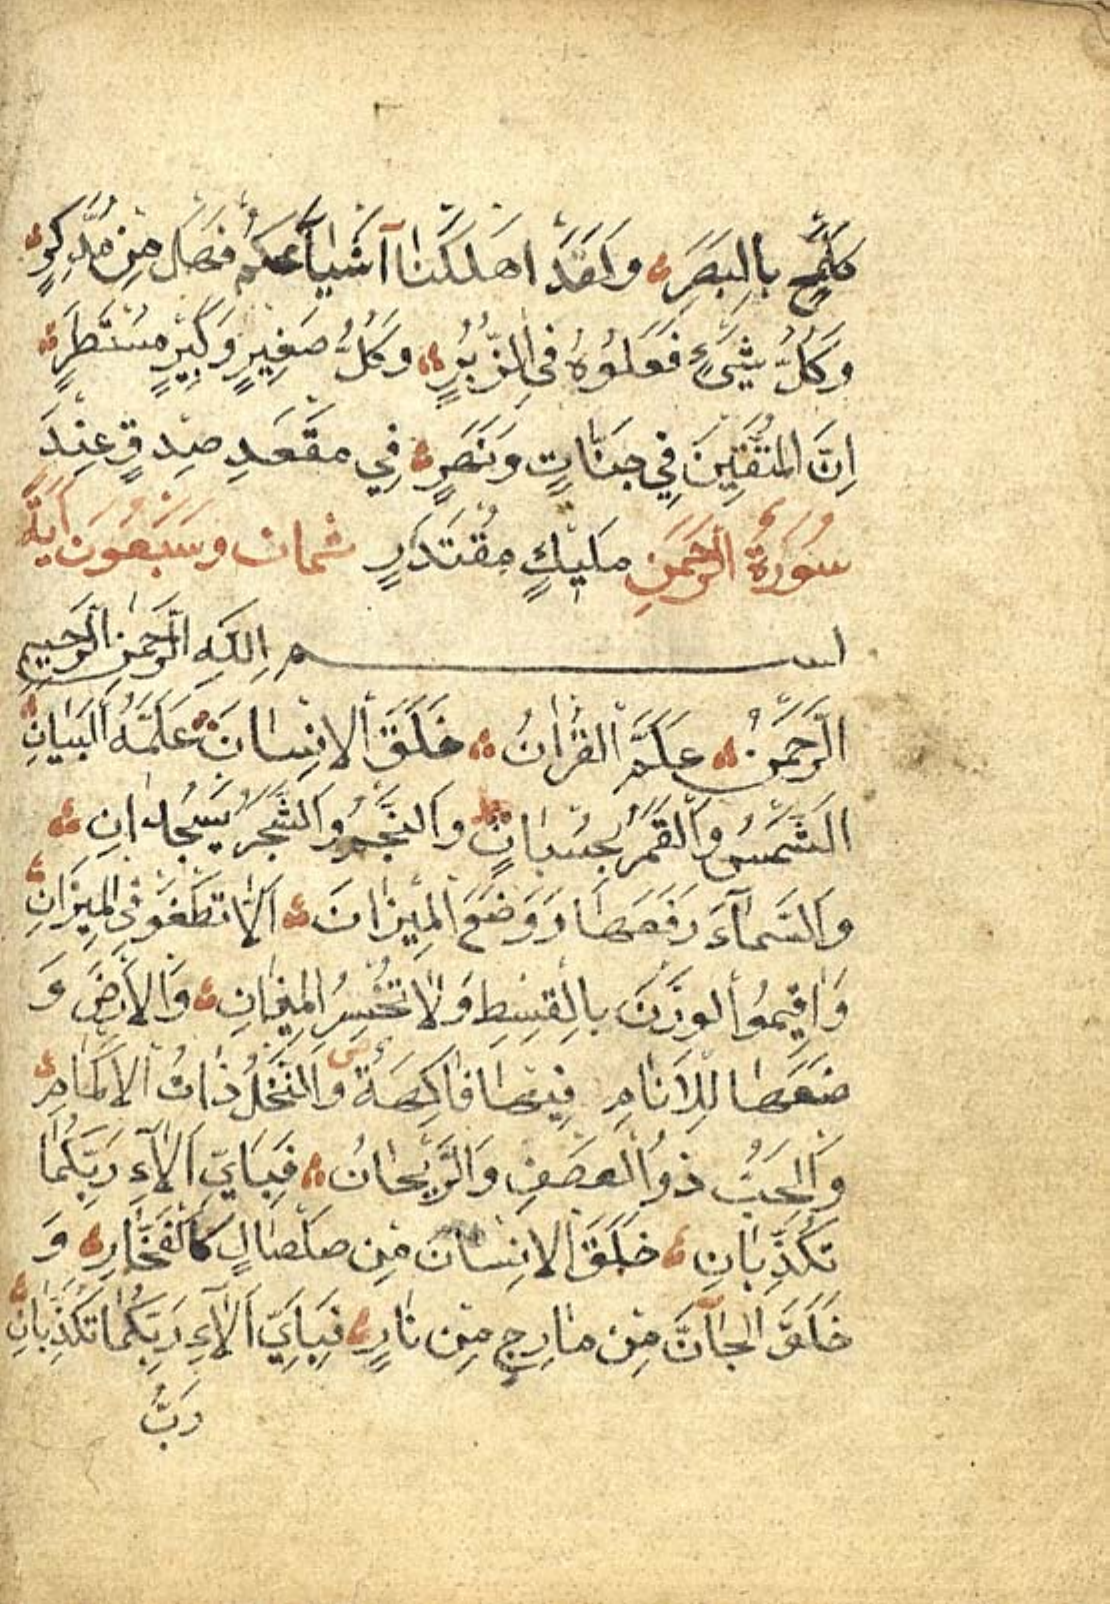 كَلَمْحٍ بِالْبَصَرِ وَلَقَدْ اهْلَكْنَا آشْيَاعَكُمْ فَهَلْ مِنْ مُدَّكِرٍ
وَكُلُّ شَيْءٍ فَعَلُوهُ فِي الزُّبُرِ وَكُلُّ صَغِيرٍ وَكَبِيرٍ مُسْتَطَرٍ
اِنَّ الْمُتَّقِينَ فِي جَنَّاتٍ وَنَهَرٍ فِي مَقْعَدِ صِدْقٍ عِنْدَ
سُورَةُ الرَّحْمَنِ مَلِيْكٍ مُقْتَدِرٍ ثمان وَسَبْعُونَ اَيَةً
بســـــــم اللَّهِ الرَّحْمَنِ الرَّحِيمِ
الرَّحْمَنُ عَلَّمَ الْقُرْانُ خَلَقَ الْاِنْسَانَ عَلَّمَهُ الْبَيَانِ
الشَّمْسُ وَالْقَمَرُ بِحُسْبَانٍ وَالنَّجْمُ وَالشَّجَرُ يَسْجُدَانِ
وَالسَّمَآءَ رَفَعَهَا وَوَضَعَ الْمِيزَانَ اَلَّا تَطْغَوْ فِي الْمِيزَانِ
وَاَقِيمُوا الْوَزْنَ بِالْقِسْطِ وَلَا تُخْسِرُ الْمِيزَانِ وَالْاَرْضَ وَ
ضَعَهَا لِلْاَنَامِ فِيهَا فَاكِهَةٌ وَالنَّخْلُ ذَاتُ الْاَكْمَامِ
وَالْحَبُّ ذُو الْعَصْفِ وَالرَّيْحَانُ فَبِاَيِّ اَلَآءِ رَبِّكُمَا
تُكَذِّبَانِ خَلَقَ الْاِنْسَانَ مِنْ صَلْصَالٍ كَالْفَخَّارِ وَ
خَلَقَ الْجَآنَّ مِنْ مَارِجٍ مِنْ نَارٍ فَبِاَيِّ اَلَآءِ رَبِّكُمَا تُكَذِّبَانِ
رَبُّ